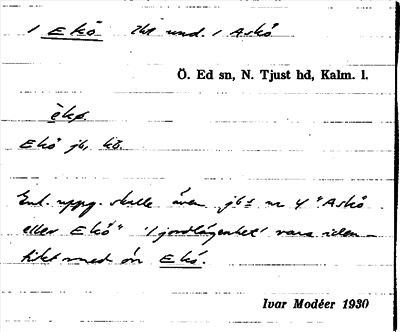 1 Ekö ... und. 1 Askö
Ö. Ed sn, N. Tjust hd, Kalm. l.
èkø.
Ekö jb, kö.
Enl. uppg. skulle även jb: nr 4 "Askö
eller Ekö" '1 jordlägenhet' vara iden-
tiskt med ön Ekö.
Ivar Modéer 1930